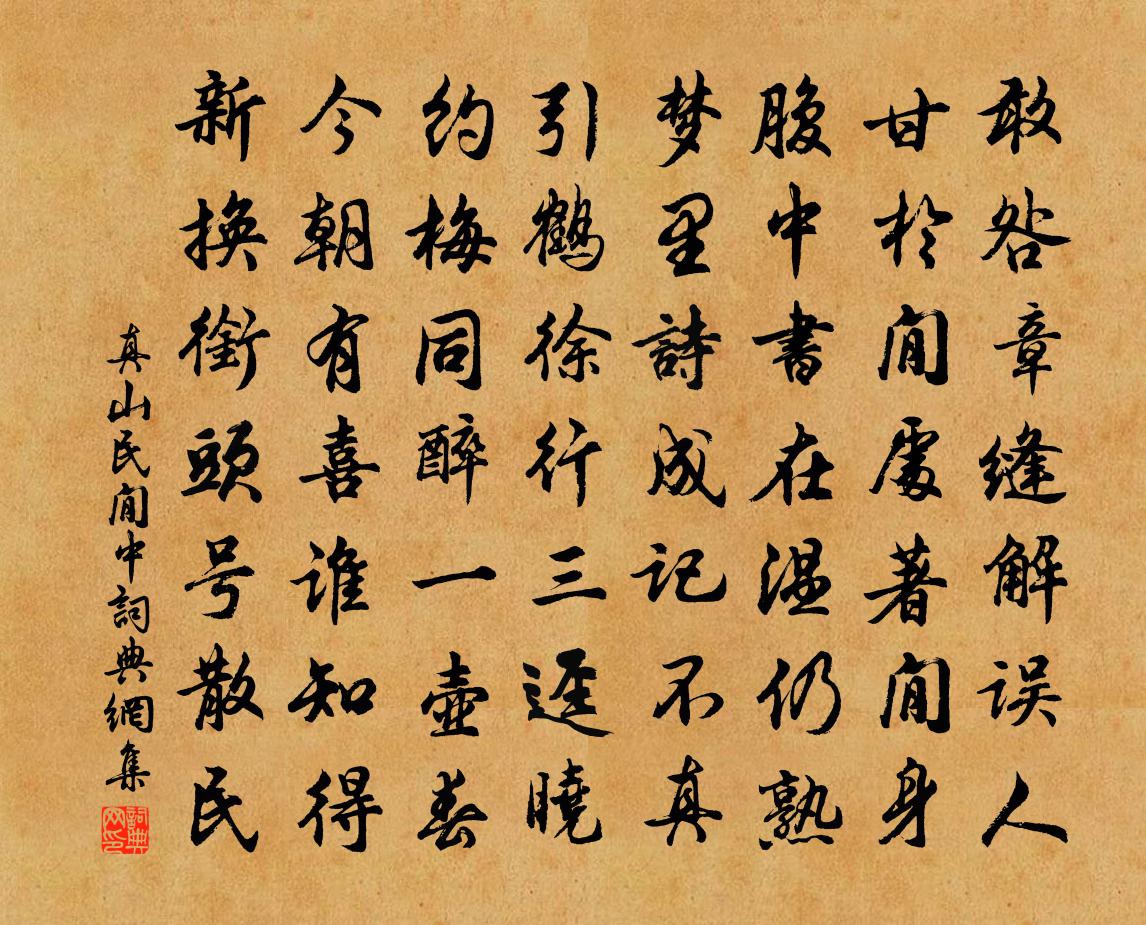 敢咎章縫解误人
甘於閒處著閒身
腹中書在温仍熟
梦里詩成记不真
引鶴徐行三逕曉
约梅同醉一壺春
今朝有喜谁知得
新换銜頭号散民
真山民閒中詞典網集
詞典网印